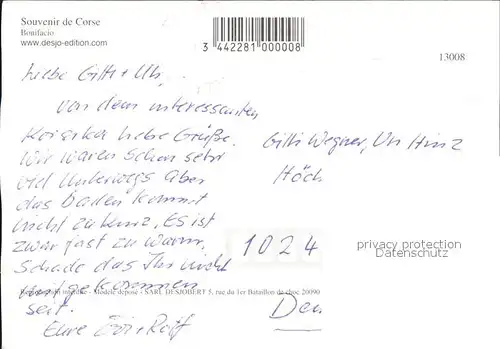 Souvenir de Corse
Bonifacio
www.desjo-edition.com
3 442281 000008
13008
Liebe Gitti + Uli,
von dem interessanten
Korsika liebe Grüße.
Wir waren schon sehr
viel unterwegs aber
das baden kommt
nicht zu kurz. Es ist
zwar fast zu warm.
Schade das Ihr nicht
mitgekommen
seit.
Eure + Rolf
Gitti Wegner, Uli Hinz
Höch
1024
privacy protection
Datenschutz
Reproduction interdite - Modèle déposé - SARL DESJOBERT 5, rue du 1er Bataillon de choc 20090